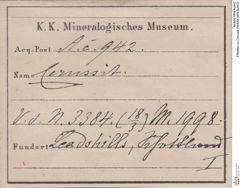 K. K. Mineralogisches Museum.
Acq. Post A.c. 942.
Name Cerussit.
V. d. N. 3384. (18/3) M. 1998.
Fundort Leadhills, Schottland
I